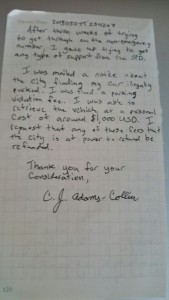 After three weeks of trying
to get through on the non-emergency
number, I gave up trying to get
any type of support from the SPD.
I was mailed a notice about
the city finding my car illegally
parked. I was fined a parking
violation fee. I was able to
retrieve the vehicle at a personal
cost of around $1,000 USD. I
request that any of those fees that
the city is at power to refund be
refunded.
Thank you for your
Consideration,
C. J. Adams-Collier